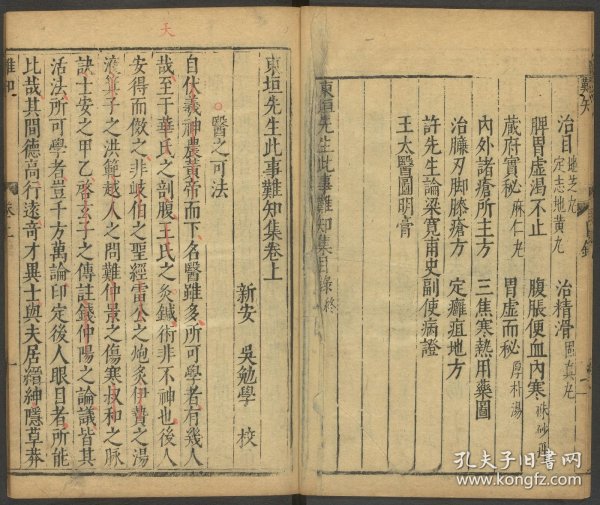 難知
治目 地芝丸 定志地黃丸 治精滑 固真丸
脾胃虛渴不止 腹脹便血內寒
藏府實秘 麻仁丸 胃虛而秘 厚朴湯
內外諸瘡所主方 三焦寒熱用藥圖
治臁刃脚膝瘡方 定癰疽地方
許先生論梁寛甫史副使病證
王太醫圖明膏
東垣先生此事難知集目錄終
天
東垣先生此事難知集卷上
新安 吳勉學 校
醫之可法
自伏羲神農黃帝而下名醫雖多所可學者有幾人
哉至于華氏之剖腹王氏之灸鍼術非不神也後人
安得而倣之非岐伯之聖經雷公之炮炙伊贄之湯
液箕子之洪範越人之問難仲景之傷寒叔和之脉
訣士安之甲乙啓玄子之傳註錢仲陽之論議皆其
活法所可學者豈千方萬論印定後人眼目者所能
比哉其間德高行遠奇才異士與夫居縉紳隱草莽
難知
一
孔夫子旧書网
www.kongfz.com